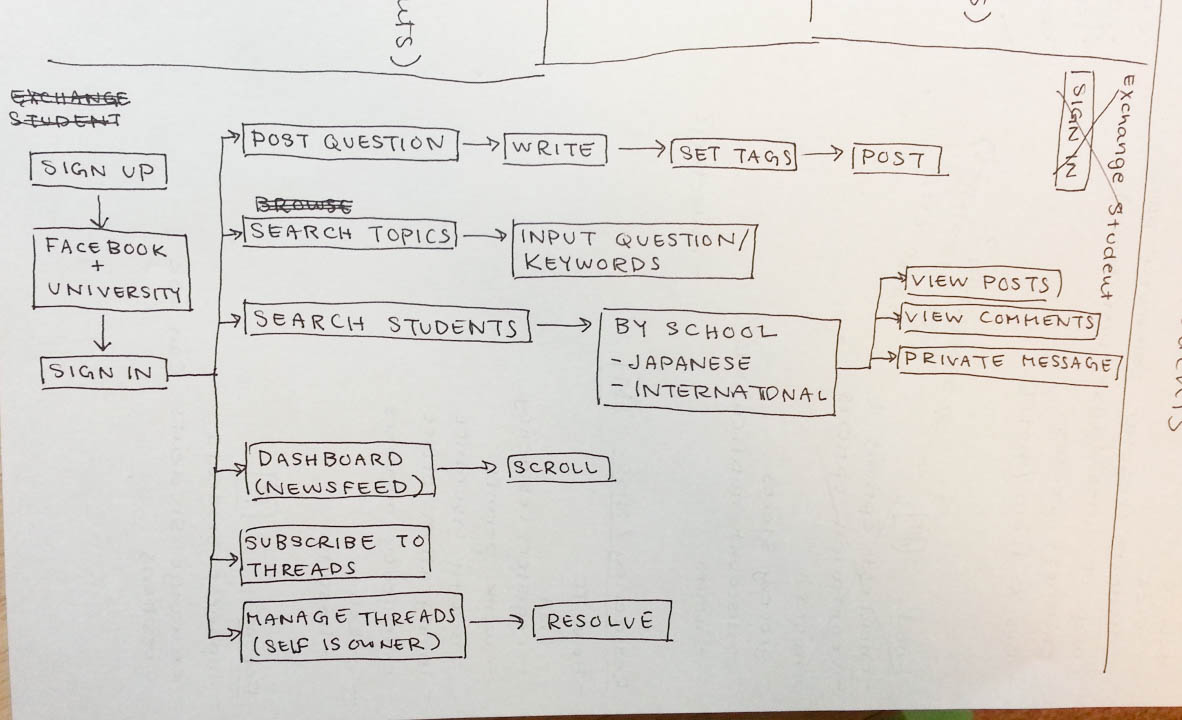 EXCHANGE
STUDENT
SIGN UP
FACEBOOK
+
UNIVERSITY
SIGN IN
POST QUESTION
WRITE
SET TAGS
POST
BROWSE
SEARCH TOPICS
INPUT QUESTION/
KEYWORDS
SEARCH STUDENTS
BY SCHOOL
- JAPANESE
- INTERNATIONAL
VIEW POSTS
VIEW COMMENTS
PRIVATE MESSAGE
DASHBOARD
(NEWSFEED)
SCROLL
SUBSCRIBE TO
THREADS
MANAGE THREADS
(SELF IS OWNER)
RESOLVE
SIGN IN
Exchange Student